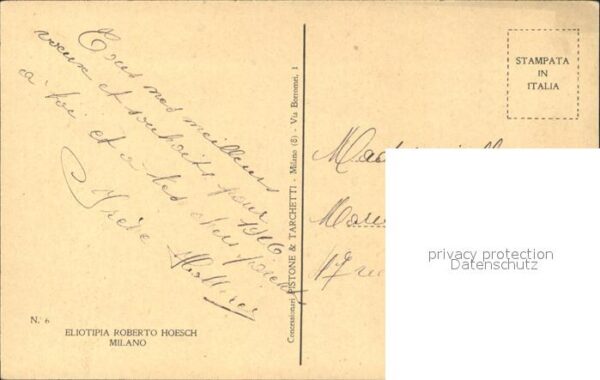 Tous nos meilleurs
voeux et souhaits pour 1946
à toi et à tes chers parents
Irène
N. 6
ELIOTIPIA ROBERTO HOESCH
MILANO
Concessionari PISTONE & TARCHETTI - Milano (8) - Via Borromei, 1
STAMPATA
IN
ITALIA
17 rue
privacy protection
Datenschutz